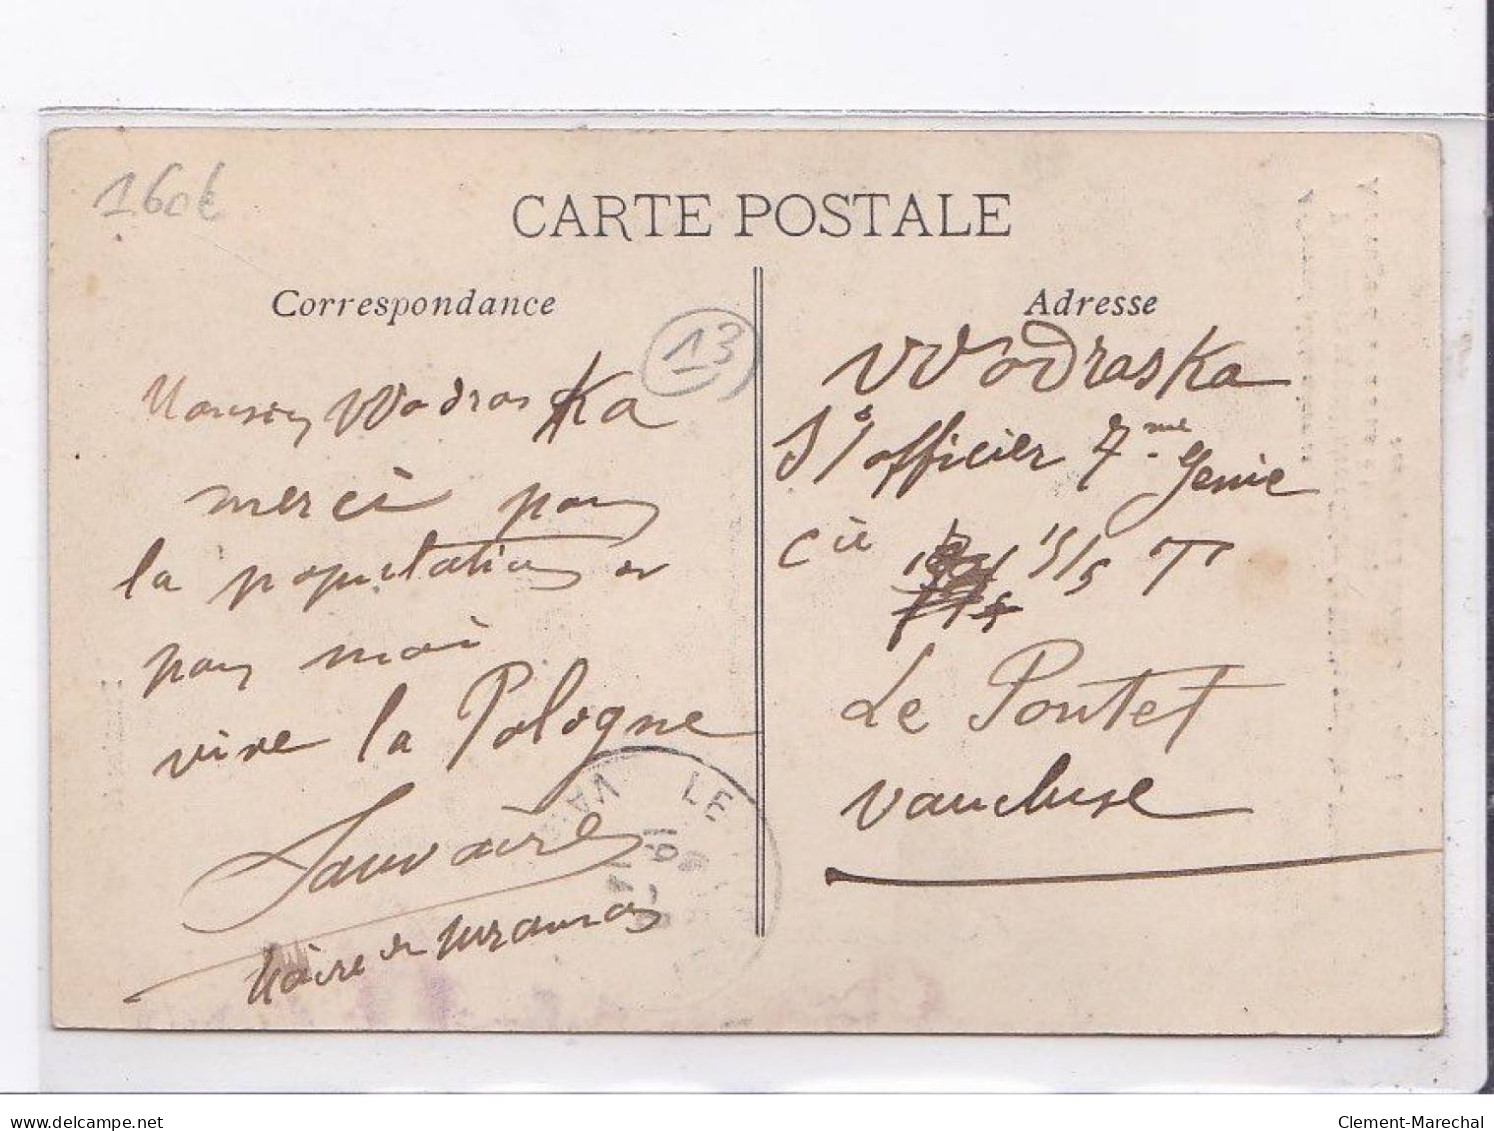 160€
CARTE POSTALE
Correspondance
13
Monsieur Wodraska
merci pour
la population et
pour moi
vive la Pologne
Sauvaire
Maire de Miramas
Adresse
Wodraska
S/officier 7me Genie
Cie 15/5 T
Le Pontet
Vaucluse
LE
VA
delcampe.net
Clement-Marechal